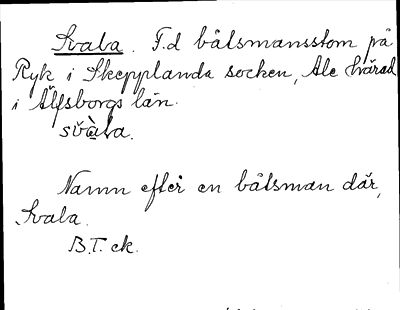 Svala. F.d båtsmanstom på
Ryk i Skepplanda socken, Ale härad
i Älfsborgs län.
svàla.
Namn efter en båtsman där,
Svala.
B.T. ek.